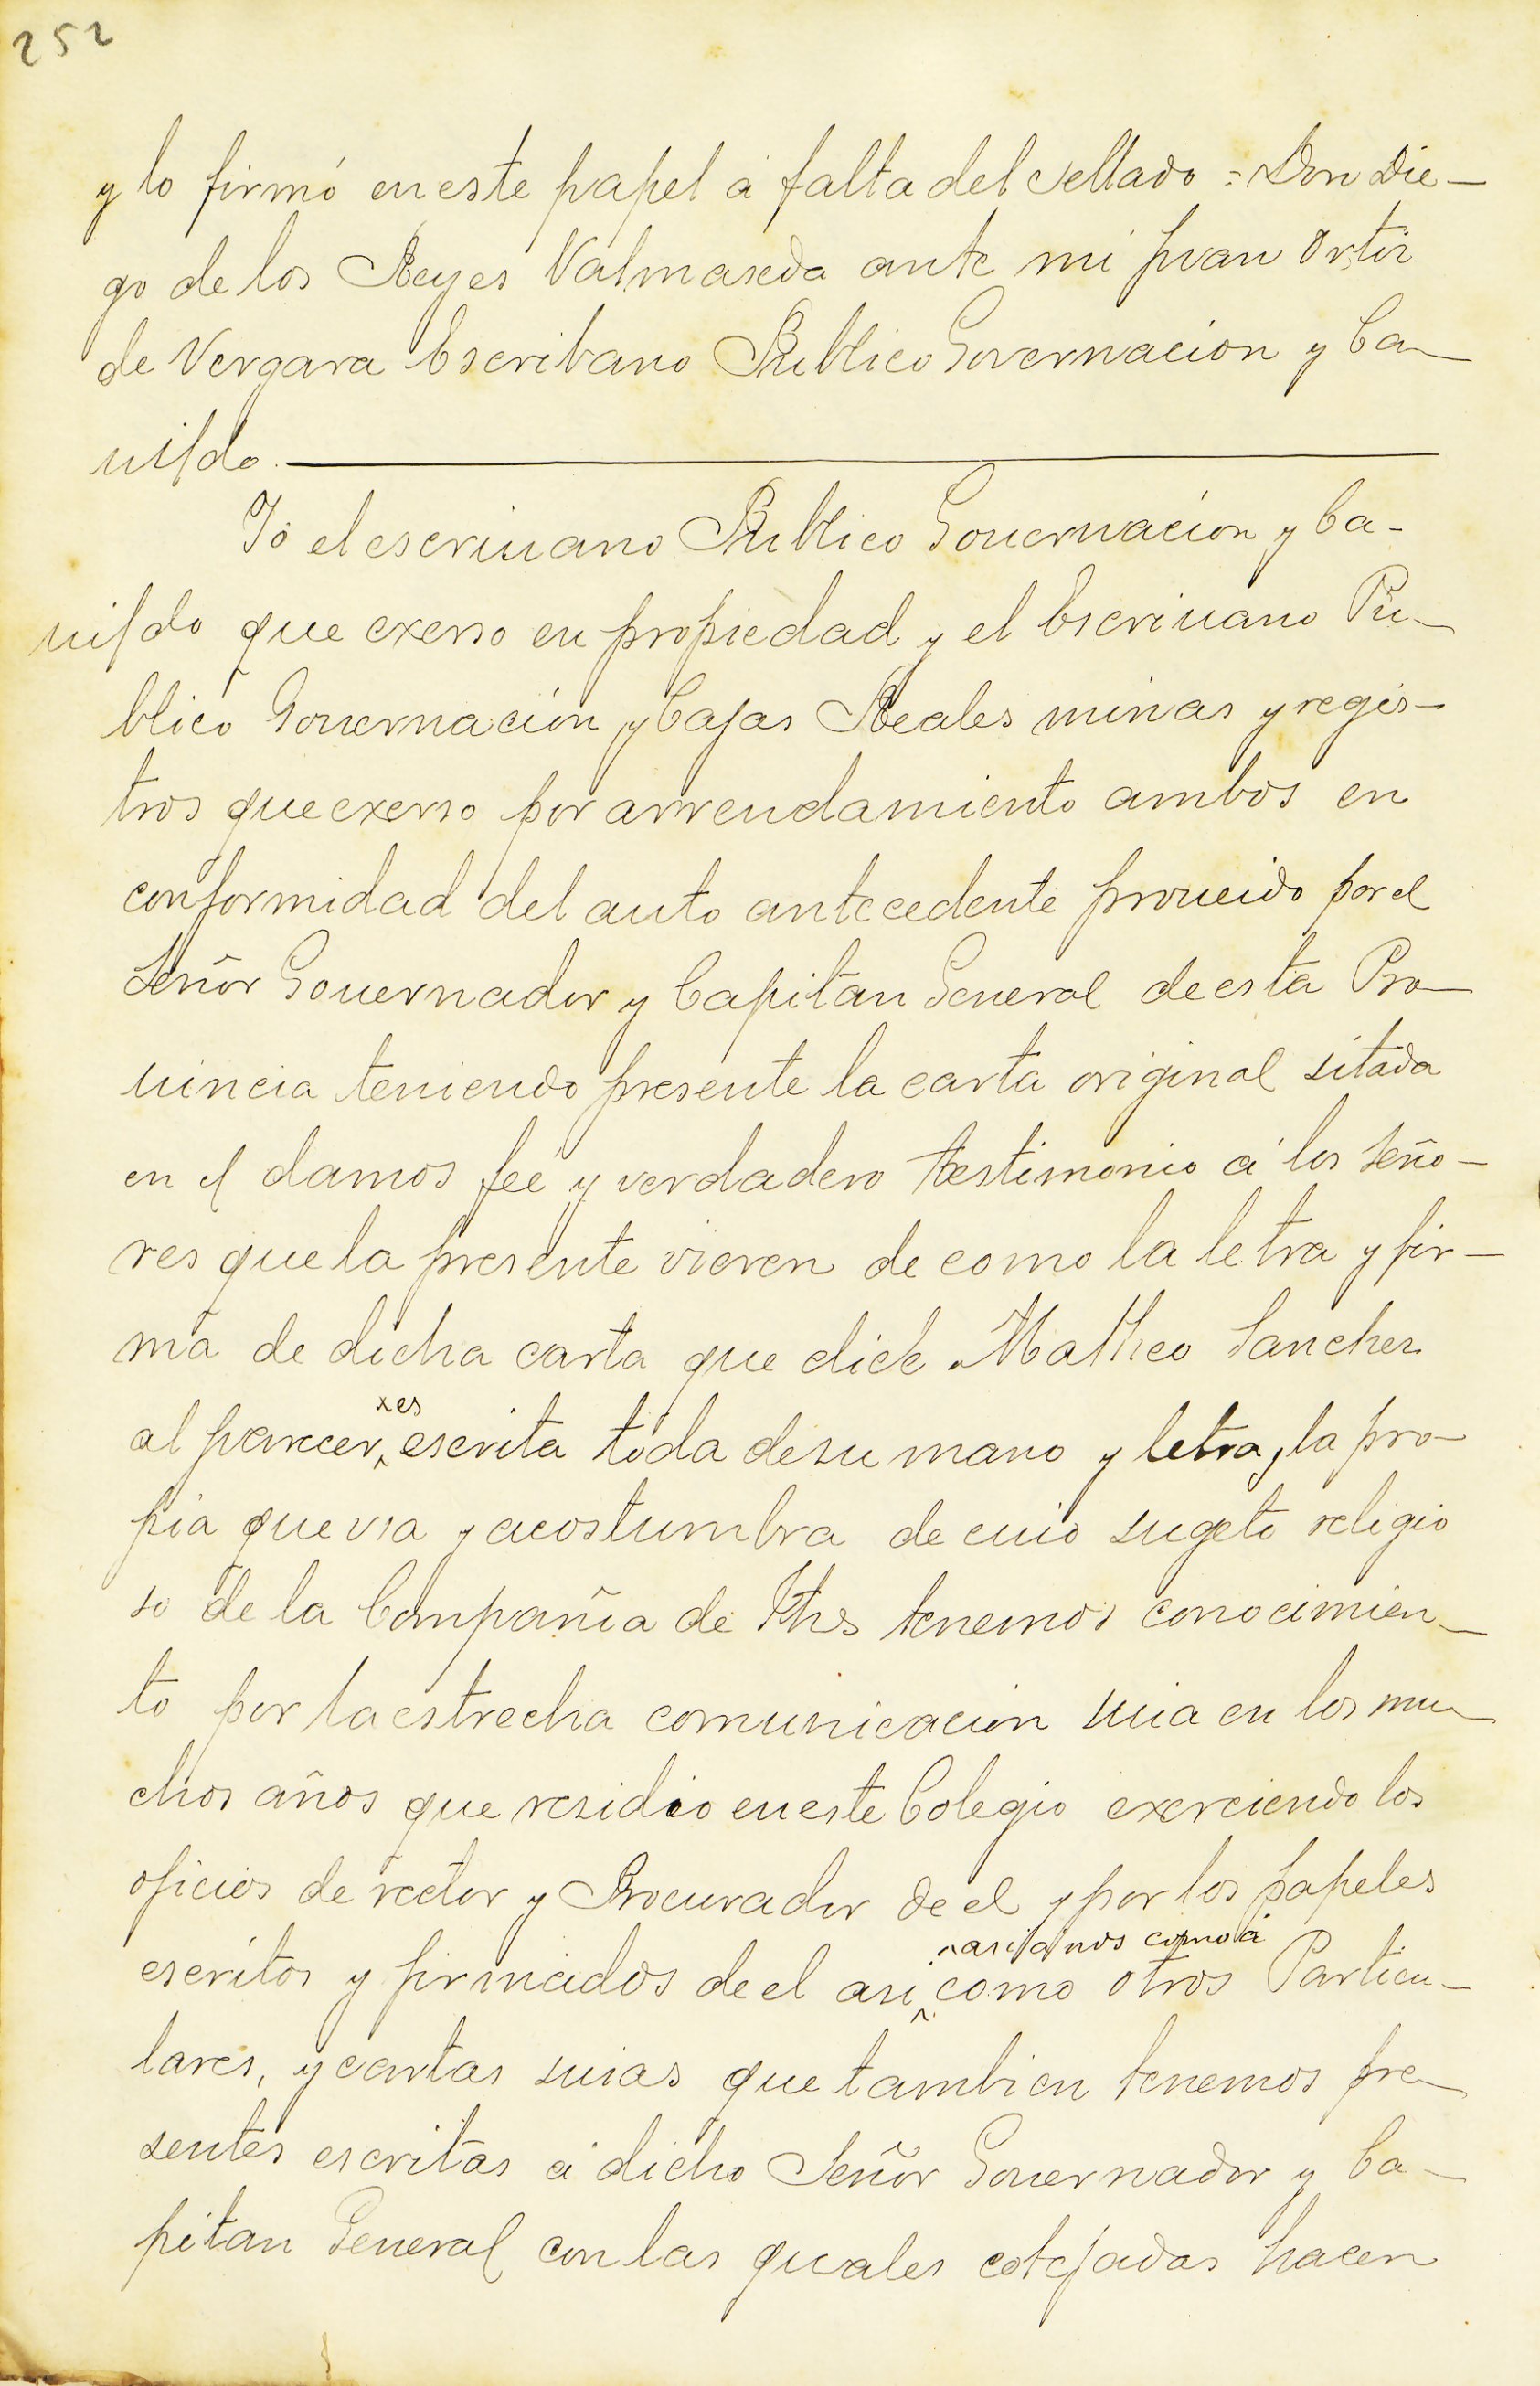 252
y lo firmó en este papel á falta del sellado = Don Die-
go de los Reyes Valmaseda ante mi Juan Ortiz
de Vergara Escribano Publico Governacion y Ca-
uildo.
Yo el escriuano Publico Gouernacion y Ca-
uildo que exerso en propiedad y el Escriuano Pu-
blico Gouernacion y Cajas Reales minas y regis-
tros que exerso por arrendamiento ambos en
conformidad del auto antecedente proueido por el
Señor Gouernador y Capitan General de esta Pro-
uincia teniendo presente la carta original sitada
en el damos feé y verdadero testimonio á los Seño-
res que la presente vieren de como la letra y fir-
ma de dicha carta que dice Matheo Sanchez
al parecer, ˣes escrita toda de su mano y letra, la pro-
pia que vsa y acostumbra de cuio sugeto religio
so de la Compañia de Jhs tenemos conocimien-
to por la estrecha comunicacion suia en los mu-
chos años que residio en este Colegio exerciendo los
oficios de rector y Procurador de el y por los papeles
asi á nos como á
escritos y firmados de el asi como otros Particu-
lares, y cartas suias que tambien tenemos pre-
sentes escritas á dicho Señor Gouernador y Ca-
pitan General con las quales cotejadas hacen